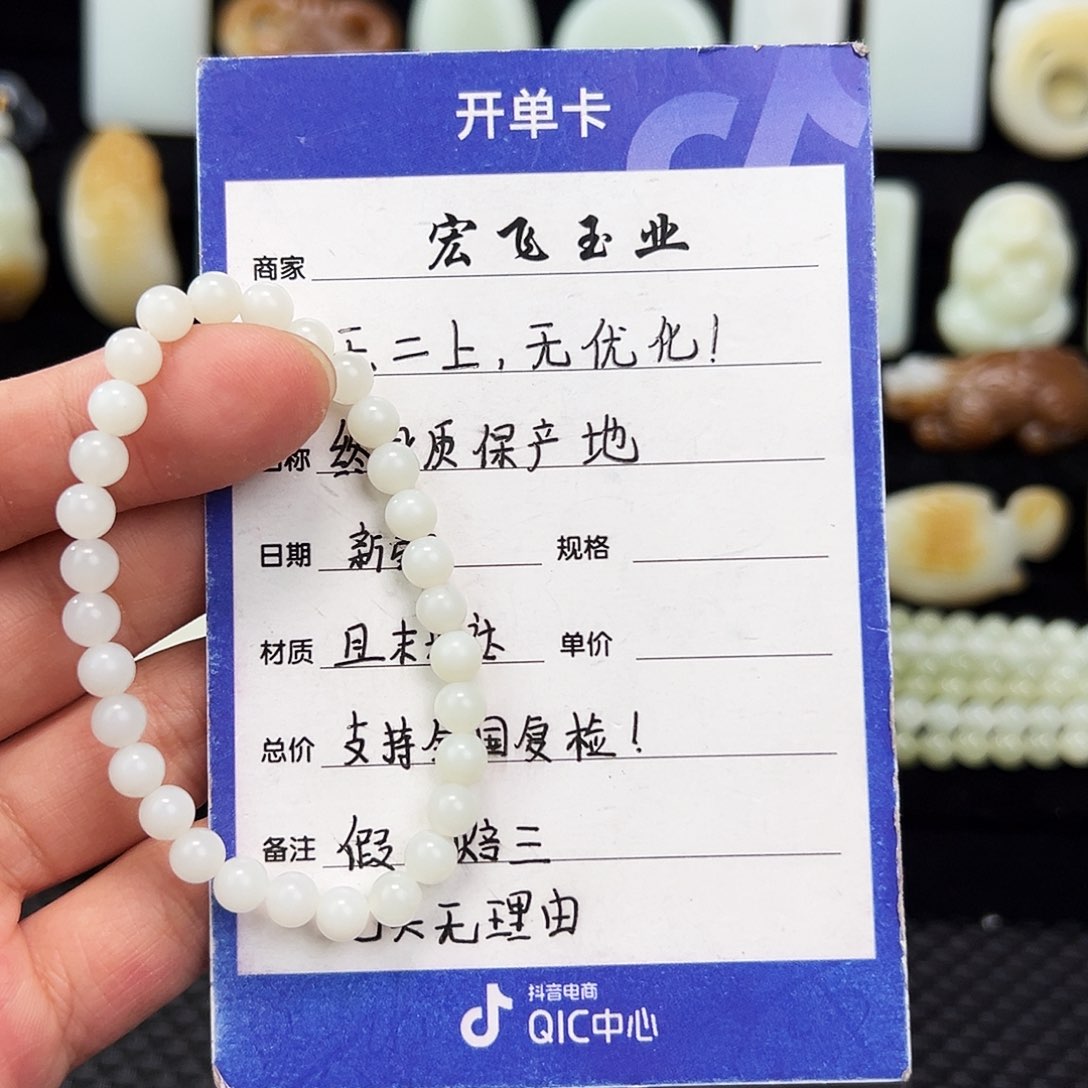 开单卡
商家 宏飞玉业
二上，无优化！
称 质保产地
日期 新 规格
材质 且末 单价
总价 支持全国复检！
备注 假 焙三
无理由
抖音电商
QIC中心